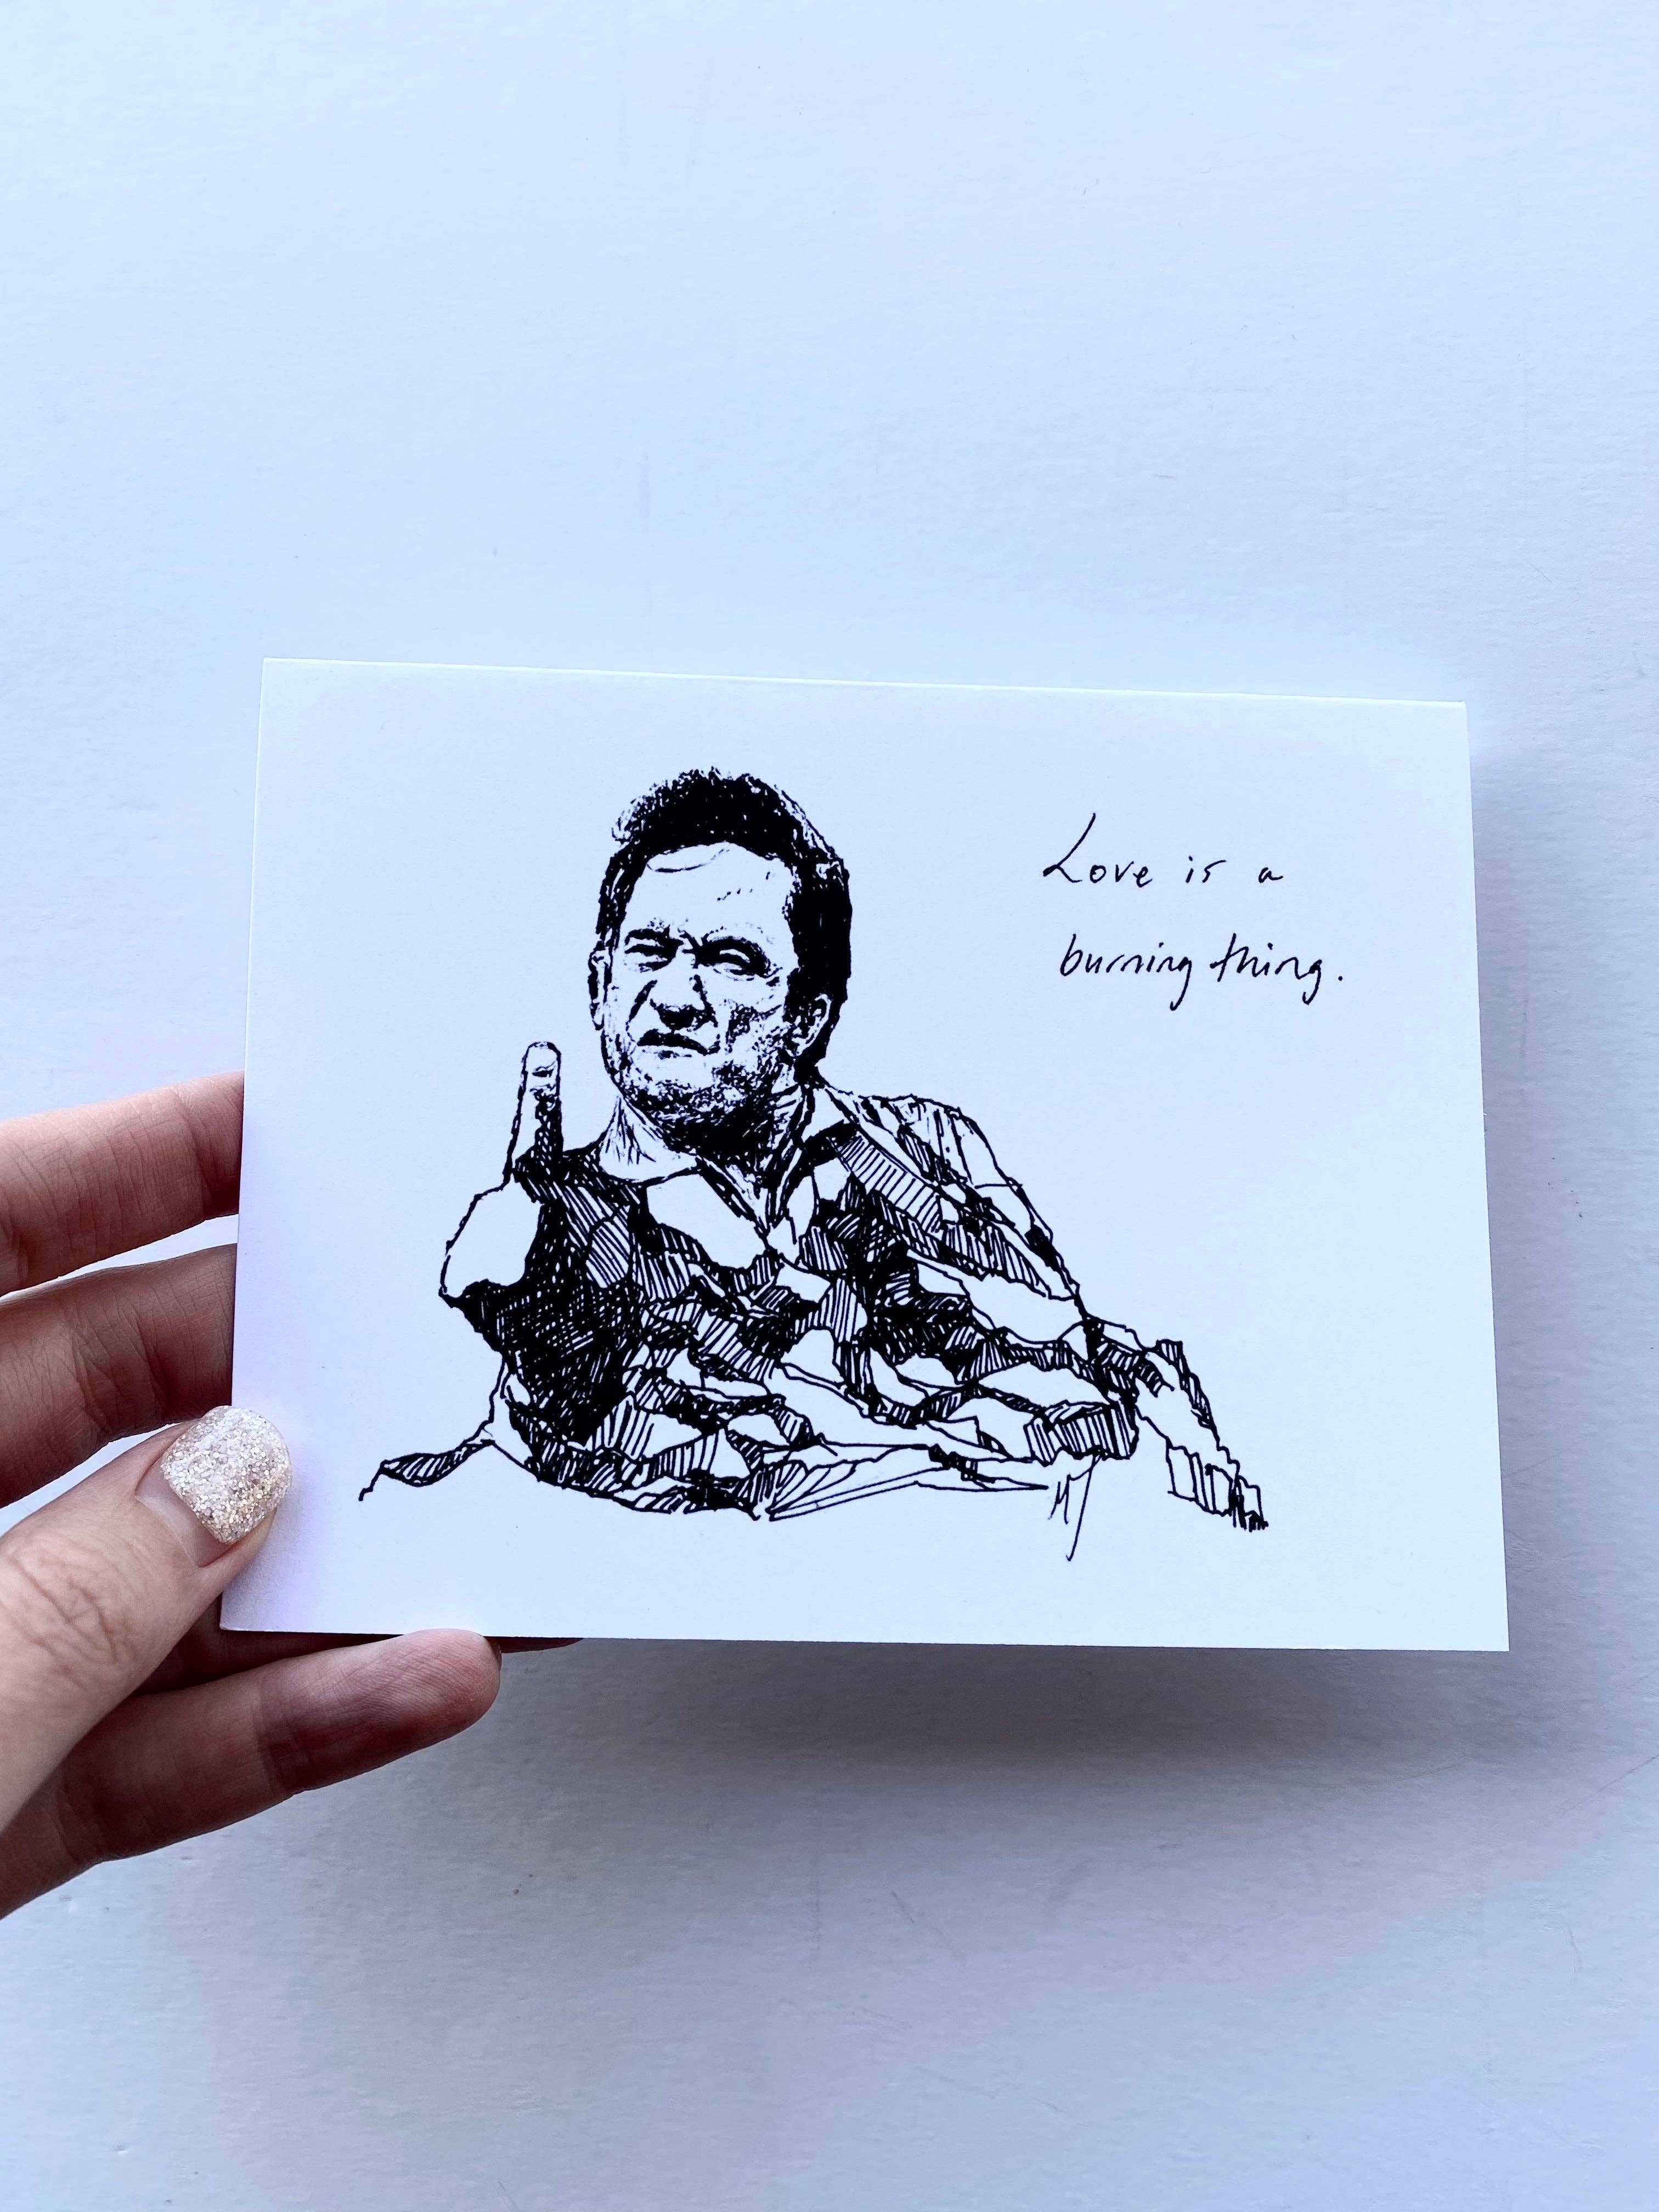 Love is a
burning thing.